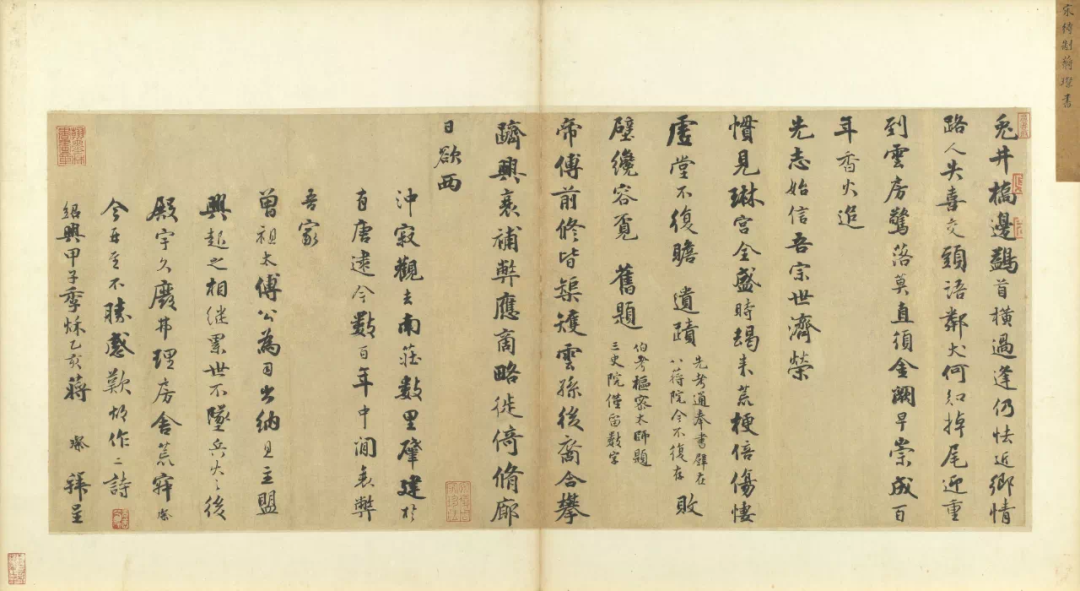 宋待制蔣璨書
兎井橋邊鷁首橫過逢仍怯近鄉情
路人失喜交頭語鄰犬何知掉尾迎重
到雲房驚落莫直須金闕早崇成百
年香火追
先志始信吾宗世濟榮
慣見琳宮全盛時朅來荒梗倍傷悽
虛堂不復瞻遺蹟
先考通奉書壁在
八蔣院今不復在
敗
壁纔容覓舊題
伯考樞密太師題
三史院僅留數字
帝傅前修皆榘矱雲孫後裔合攀
躋興衰補弊應商略徙倚脩廊
日欲西
沖寂觀去南莊數里肇建於
有唐遠今數百年中間衰弊
吾家
曾祖太傅公為司出納且主盟
興起之相継累世不墜兵火之後
殿宇久廢弗理房舍荒 璨
今再至不勝感歎 作二詩
紹興甲子季秋乙亥蔣璨拜呈